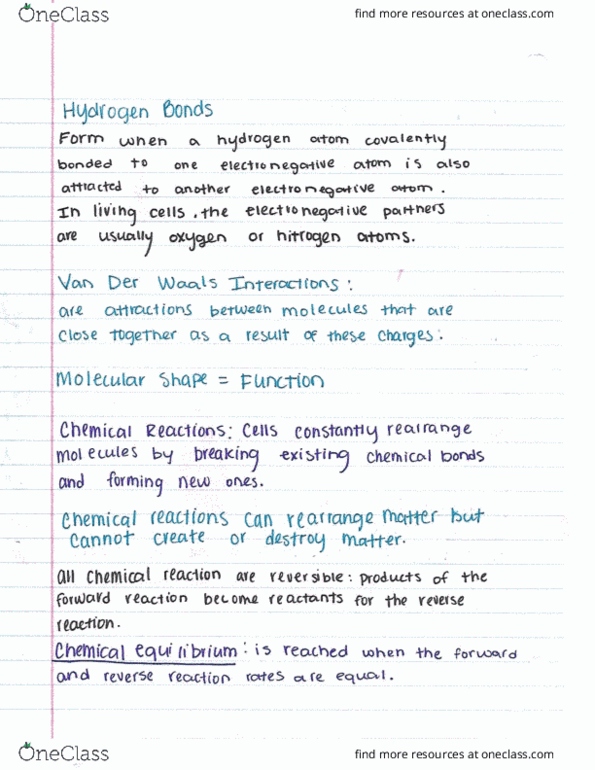 OneClass
find more resources at oneclass.com
Hydrogen Bonds
Form when a hydrogen atom covalently
bonded to one electronegative atom is also
attracted to another electronegative atom.
In living cells, the electronegative partners
are usually oxygen or nitrogen atoms.
Van Der Waals Interactions:
are attractions between molecules that are
close together as a result of these charges:
Molecular Shape = Function
Chemical Reactions: Cells constantly rearrange
molecules by breaking existing chemical bonds
and forming new ones.
Chemical reactions can rearrange matter but
cannot create or destroy matter.
all chemical reaction are reversible: products of the
forward reaction become reactants for the reverse
reaction.
Chemical equilibrium: is reached when the forward
and reverse reaction rates are equal.
OneClass
find more resources at oneclass.com